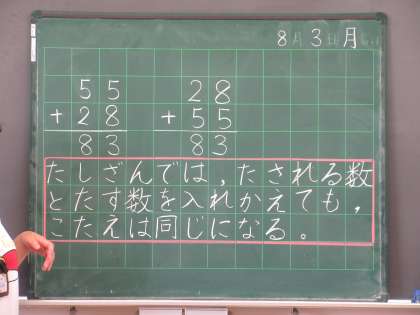 8月3日月
55　28
+28　+55
83　83
たしざんでは,たされる数
とたす数を入れかえても,
こたえは同じになる。